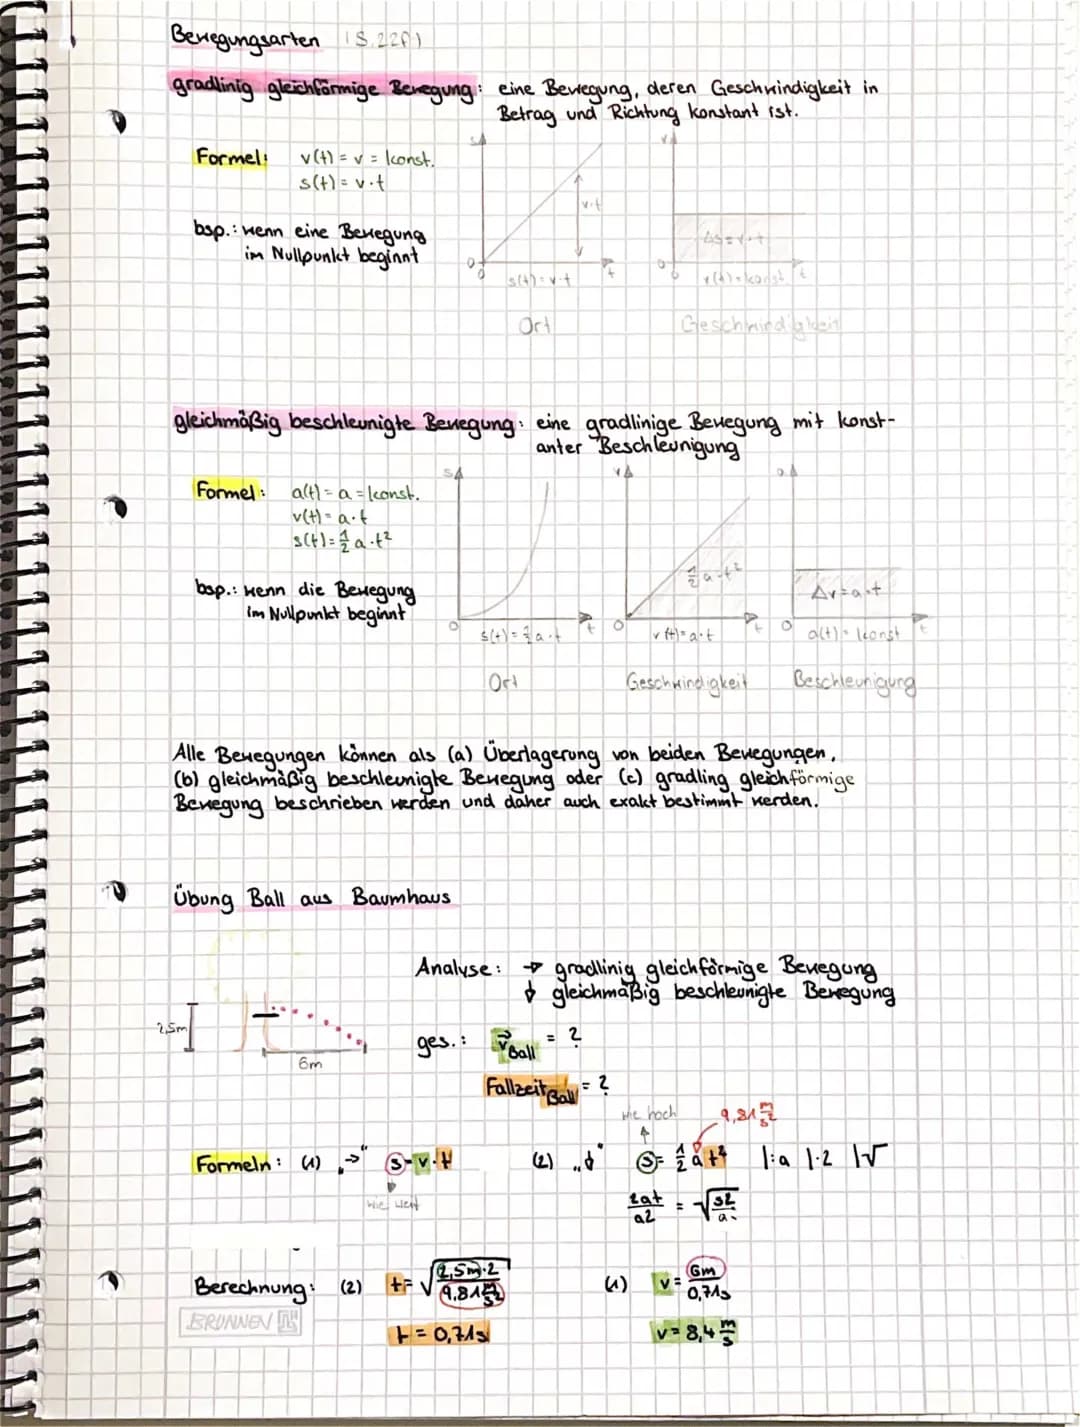 Bewegungsarten (S.22f)
gradlinig gleichförmige Bewegung: eine Bewegung, deren Geschwindigkeit in
Betrag und Richtung konstant ist.
Formel: v(t) = v = konst.
s(t) = v·t
bsp.: wenn eine Bewegung
im Nullpunkt beginnt
s
v·t
0
0
t
s(t) = v·t
Ort
v
Δs = v·t
0
0
t
v(t) = konst.
Geschwindigkeit
gleichmäßig beschleunigte Bewegung: eine gradlinige Bewegung mit konst-
anter Beschleunigung
Formel: a(t) = a = konst.
v(t) = a·t
s(t) = 1/2 a·t²
bsp.: wenn die Bewegung
im Nullpunkt beginnt
s
0
t
s(t) = 1/2 a·t
Ort
v
1/2 a·t²
0
t
v(t) = a·t
Geschwindigkeit
a
Δv = a·t
0
t
a(t) = konst
Beschleunigung
Alle Bewegungen können als (a) Überlagerung von beiden Bewegungen,
(b) gleichmäßig beschleunigte Bewegung oder (c) gradling gleichförmige
Bewegung beschrieben werden und daher auch exakt bestimmt werden.
Übung Ball aus Baumhaus
2,5m
6m
Analyse: → gradlinig gleichförmige Bewegung
↓ gleichmäßig beschleunigte Bewegung
ges.: v⃗Ball = ?
FallzeitBall = ?
wie hoch 9,81 m/s²
Formeln: (1) „→" s=v·t (2) „↓" s = 1/2 a t² |:a |·2 |√
wie weit
2at/a2 = √s2/a
Berechnung: (2) t = √2,5m·2/9,81 m/s² (1) v = 6m/0,71s
BRUNNEN
t = 0,71s v = 8,4 m/s